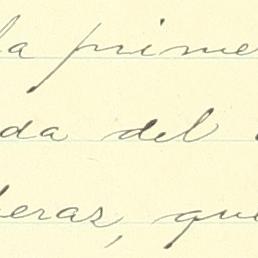 la prime
da del
beras, que